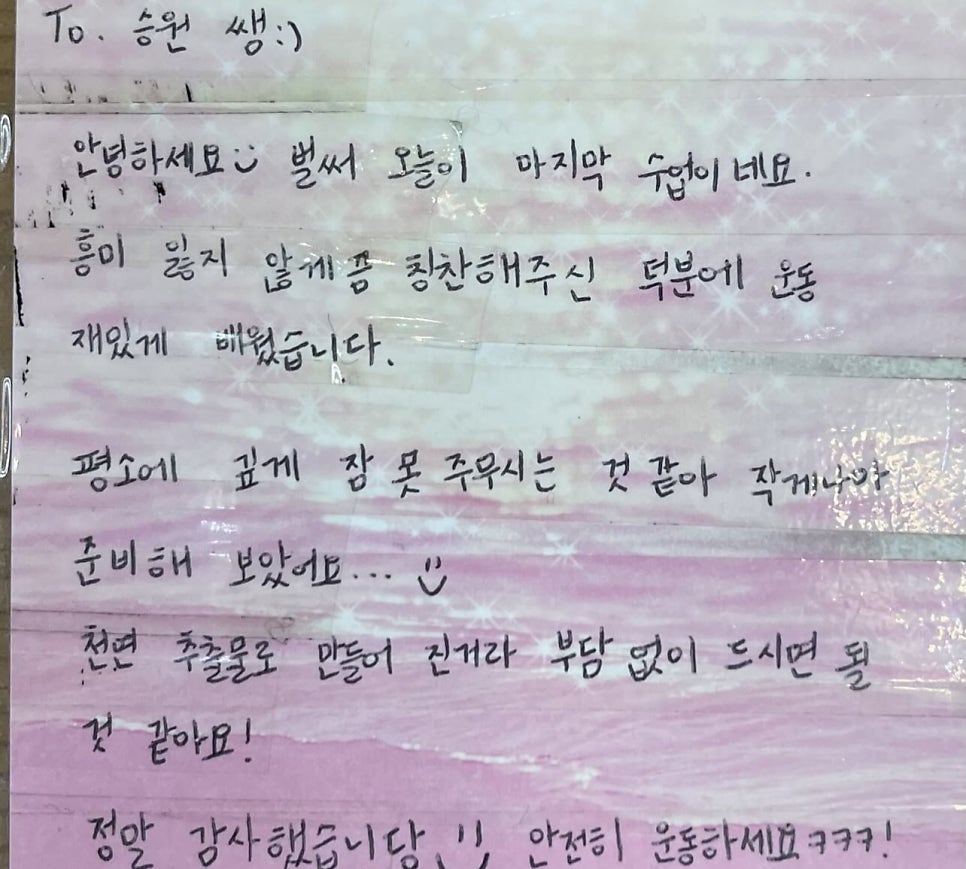 To. 승원 쌩:)
안녕하세요 벌써 오늘이 마지막 수업이네요.
흥미 잃지 않게끔 칭찬해주신 덕분에 운동
재있게 배웠습니다.
평소에 깊게 잠 못 주무시는 것 같아 작게나마
준비해 보았어요...
천연 추출물로 만들어 진거라 부담 없이 드시면 될
것 같아요!
정말 감사했습니당 안전히 운동하세요ㅋㅋㅋ!